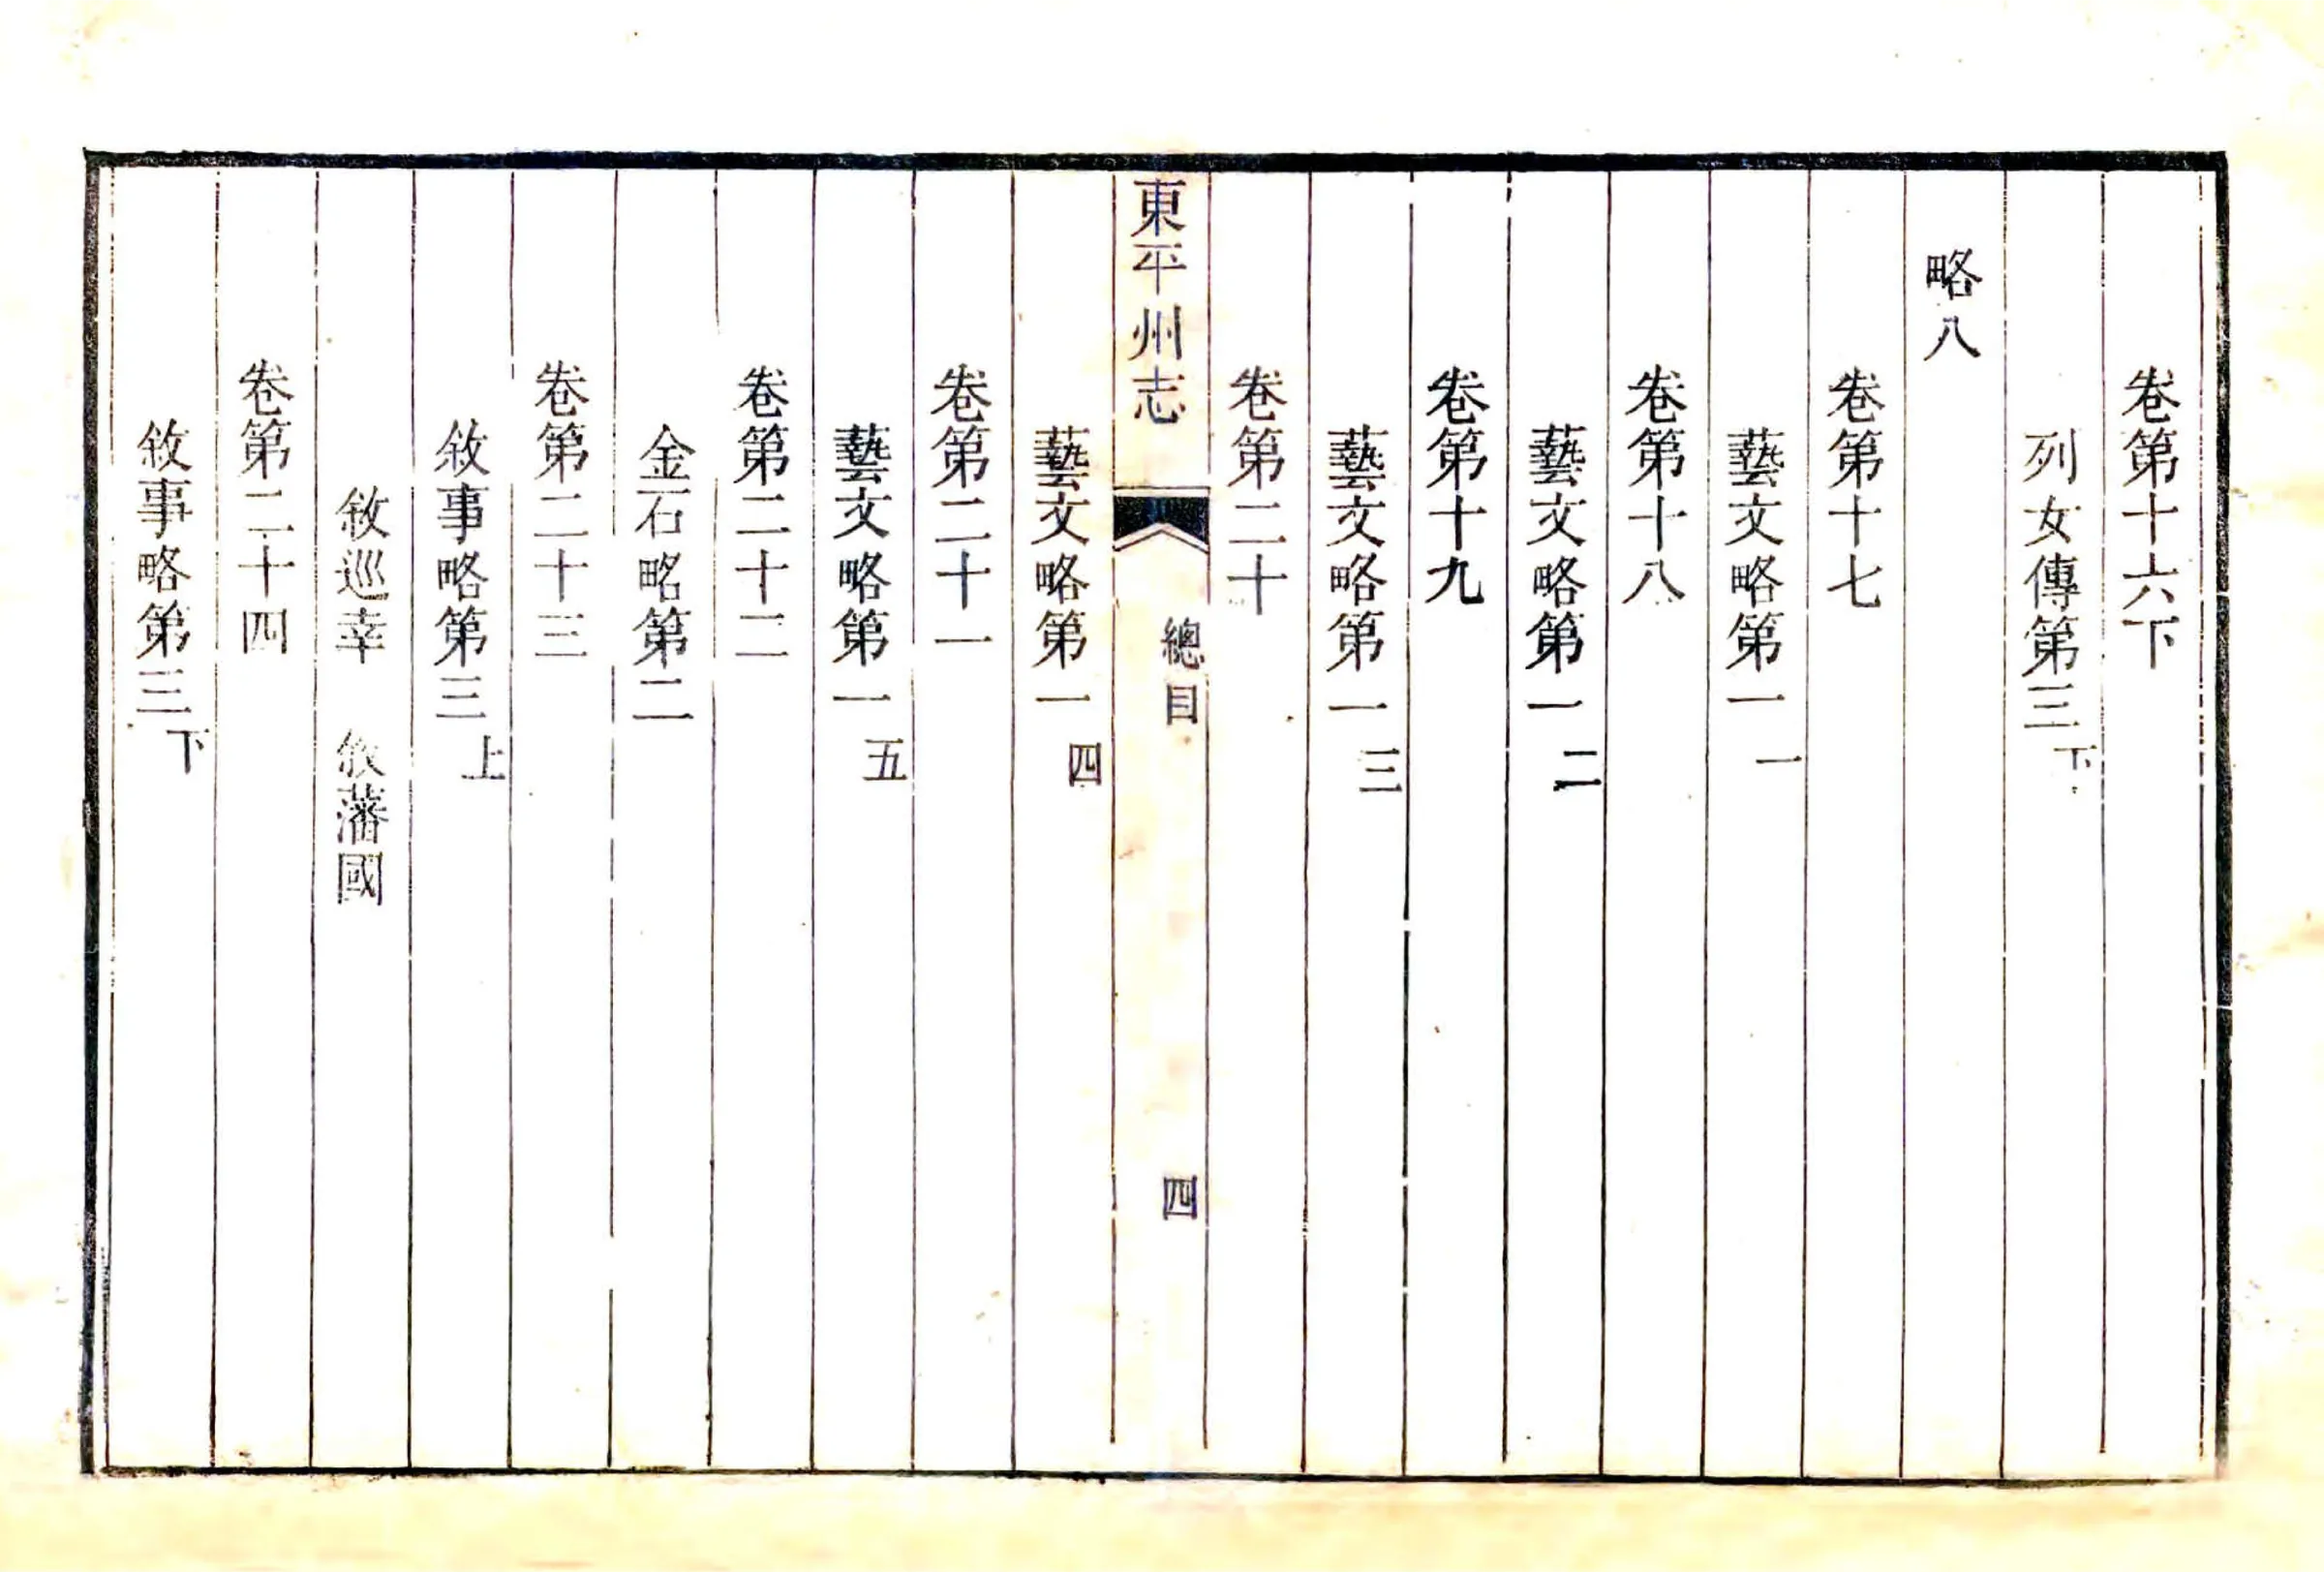 卷第十六下
列女傳第三下
略八
卷第十七
藝文略第一一
卷第十八
藝文略第一二
卷第十九
藝文略第一三
卷第二十
東平州志 總目 四
藝文略第一四
卷第二十一
藝文略第一五
卷第二十二
金石略第二
卷第二十三
敘事略第三上
敘巡幸 敘藩國
卷第二十四
敘事略第三下